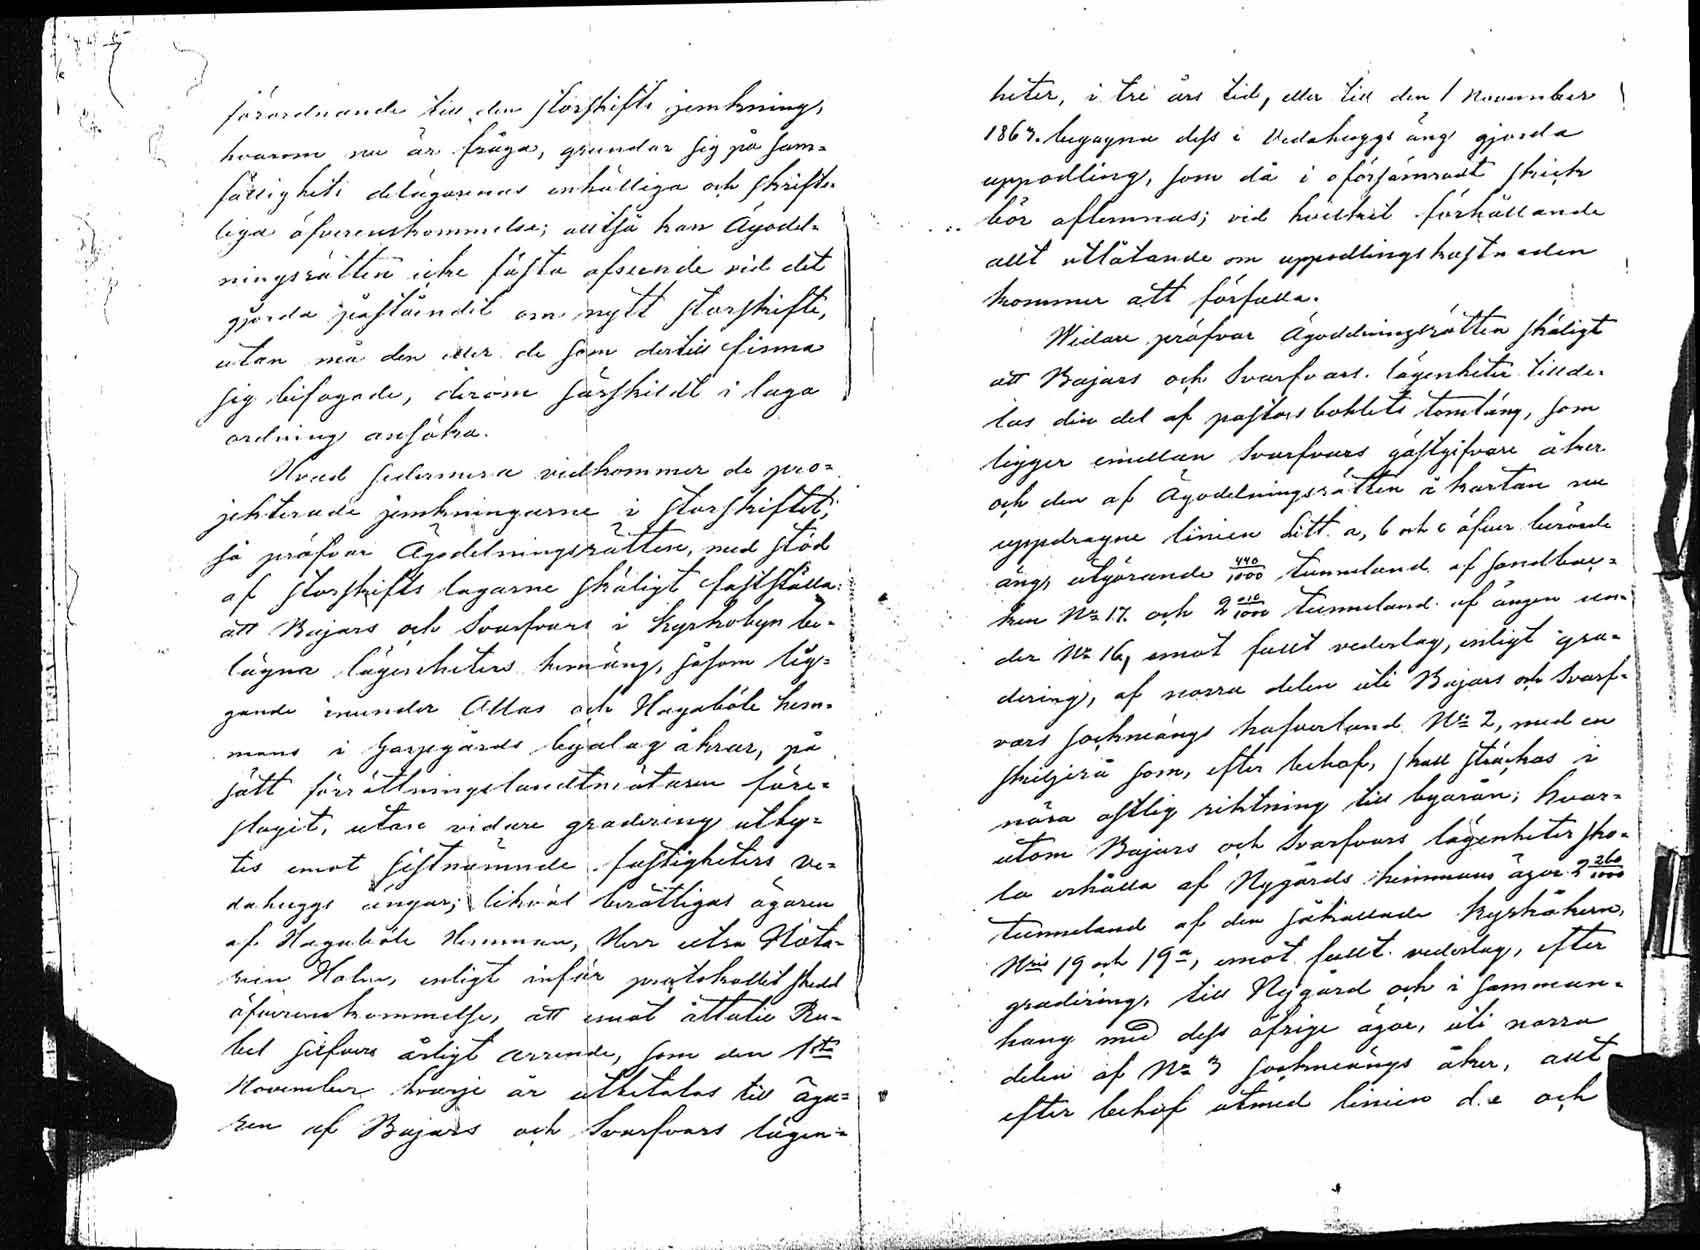 förordnande till den storskifts jemkning,
hvarom nu är fråga, grundar sig på sam-
fällighets delägarenas enhälliga och skrift-
liga öfverenskommelse; alltså kan Ägodel-
ningsrätten icke fästa afseende vid det
gjorda påståendet om nytt storskifte,
utan må den eller de som dertill finna
sig befogade, derom särskildt i laga
ordning ansöka.
Hvad sedermera vidkommer de pro-
jekterade jemkningarne i storskiftet,
så pröfvar Ägodelningsrätten, med stöd
af storskifts lagarne skäligt fastställa:
att Bajars och Svarfvars i Kyrkobyn be-
lägna lägenheters hemäng, såsom lig-
gande inunder Allas och Hagaböle hem-
mans i Gaspgårds byalag åkrar, på
sätt förrättningslandtmätaren före-
slagit, utan vidare gradering utby-
tes emot sistnämnde fastigheters ve-
dahuggs ängar; likväl berättigas ägaren
af Hagaböle Hemman, Herr extra Nota-
rien Holm, enligt inför protokollet skedd
öfverenskommelse, att emot åttatio Ru-
bel silfver årligt arrende, som den 1sta
November hvarje år utbetalas till äga-
ren af Bajars och Svarfvars lägen-
heter, i tre års tid, eller till den 1 November
1863. begagna dess i Vedahuggs äng gjorda
uppodling, som då i oförsämradt skick
bör aflemnas; vid hvilket förhållande
allt utlåtande om uppodlingskostnaden
kommer att förfalla.
Widare pröfvar Ägodelningsrätten skäligt
att Bajars och Svarfvars lägenheter tillde-
las den del af pastorsbohlets tomtäng, som
ligger emellan Svarfvars gästgifvare åker
och den af Ägodelningsrätten å kartan nu
uppdragne linien Litt. a, b och c öfver berörde
äng, utgörande 440/1000 tunneland af sandbac-
ken No 17 och 2 010/1000 tunneland af ängen un-
der No 16, emot fullt vederlag, enligt gra-
dering, af norra delen uti Bajars och Svarf-
vars sockneängs hafverland No 2, med en
skiljerå som, efter behof, skall sträckas i
nära ostlig riktning till byarån; hvar-
utom Bajars och Svarfvars lägenheter sko-
la erhålla af Nygårds hemmans ägor 2 260/1000
tunneland af den såkallade Kyrkåkern,
Nris 19 och 19a, emot fullt vederlag, efter
gradering, till Nygård och i samman-
hang med dess öfrige ägor, uti norra
delen af No 3 sockneängs åker, allt
efter behof utmed linien d. e och